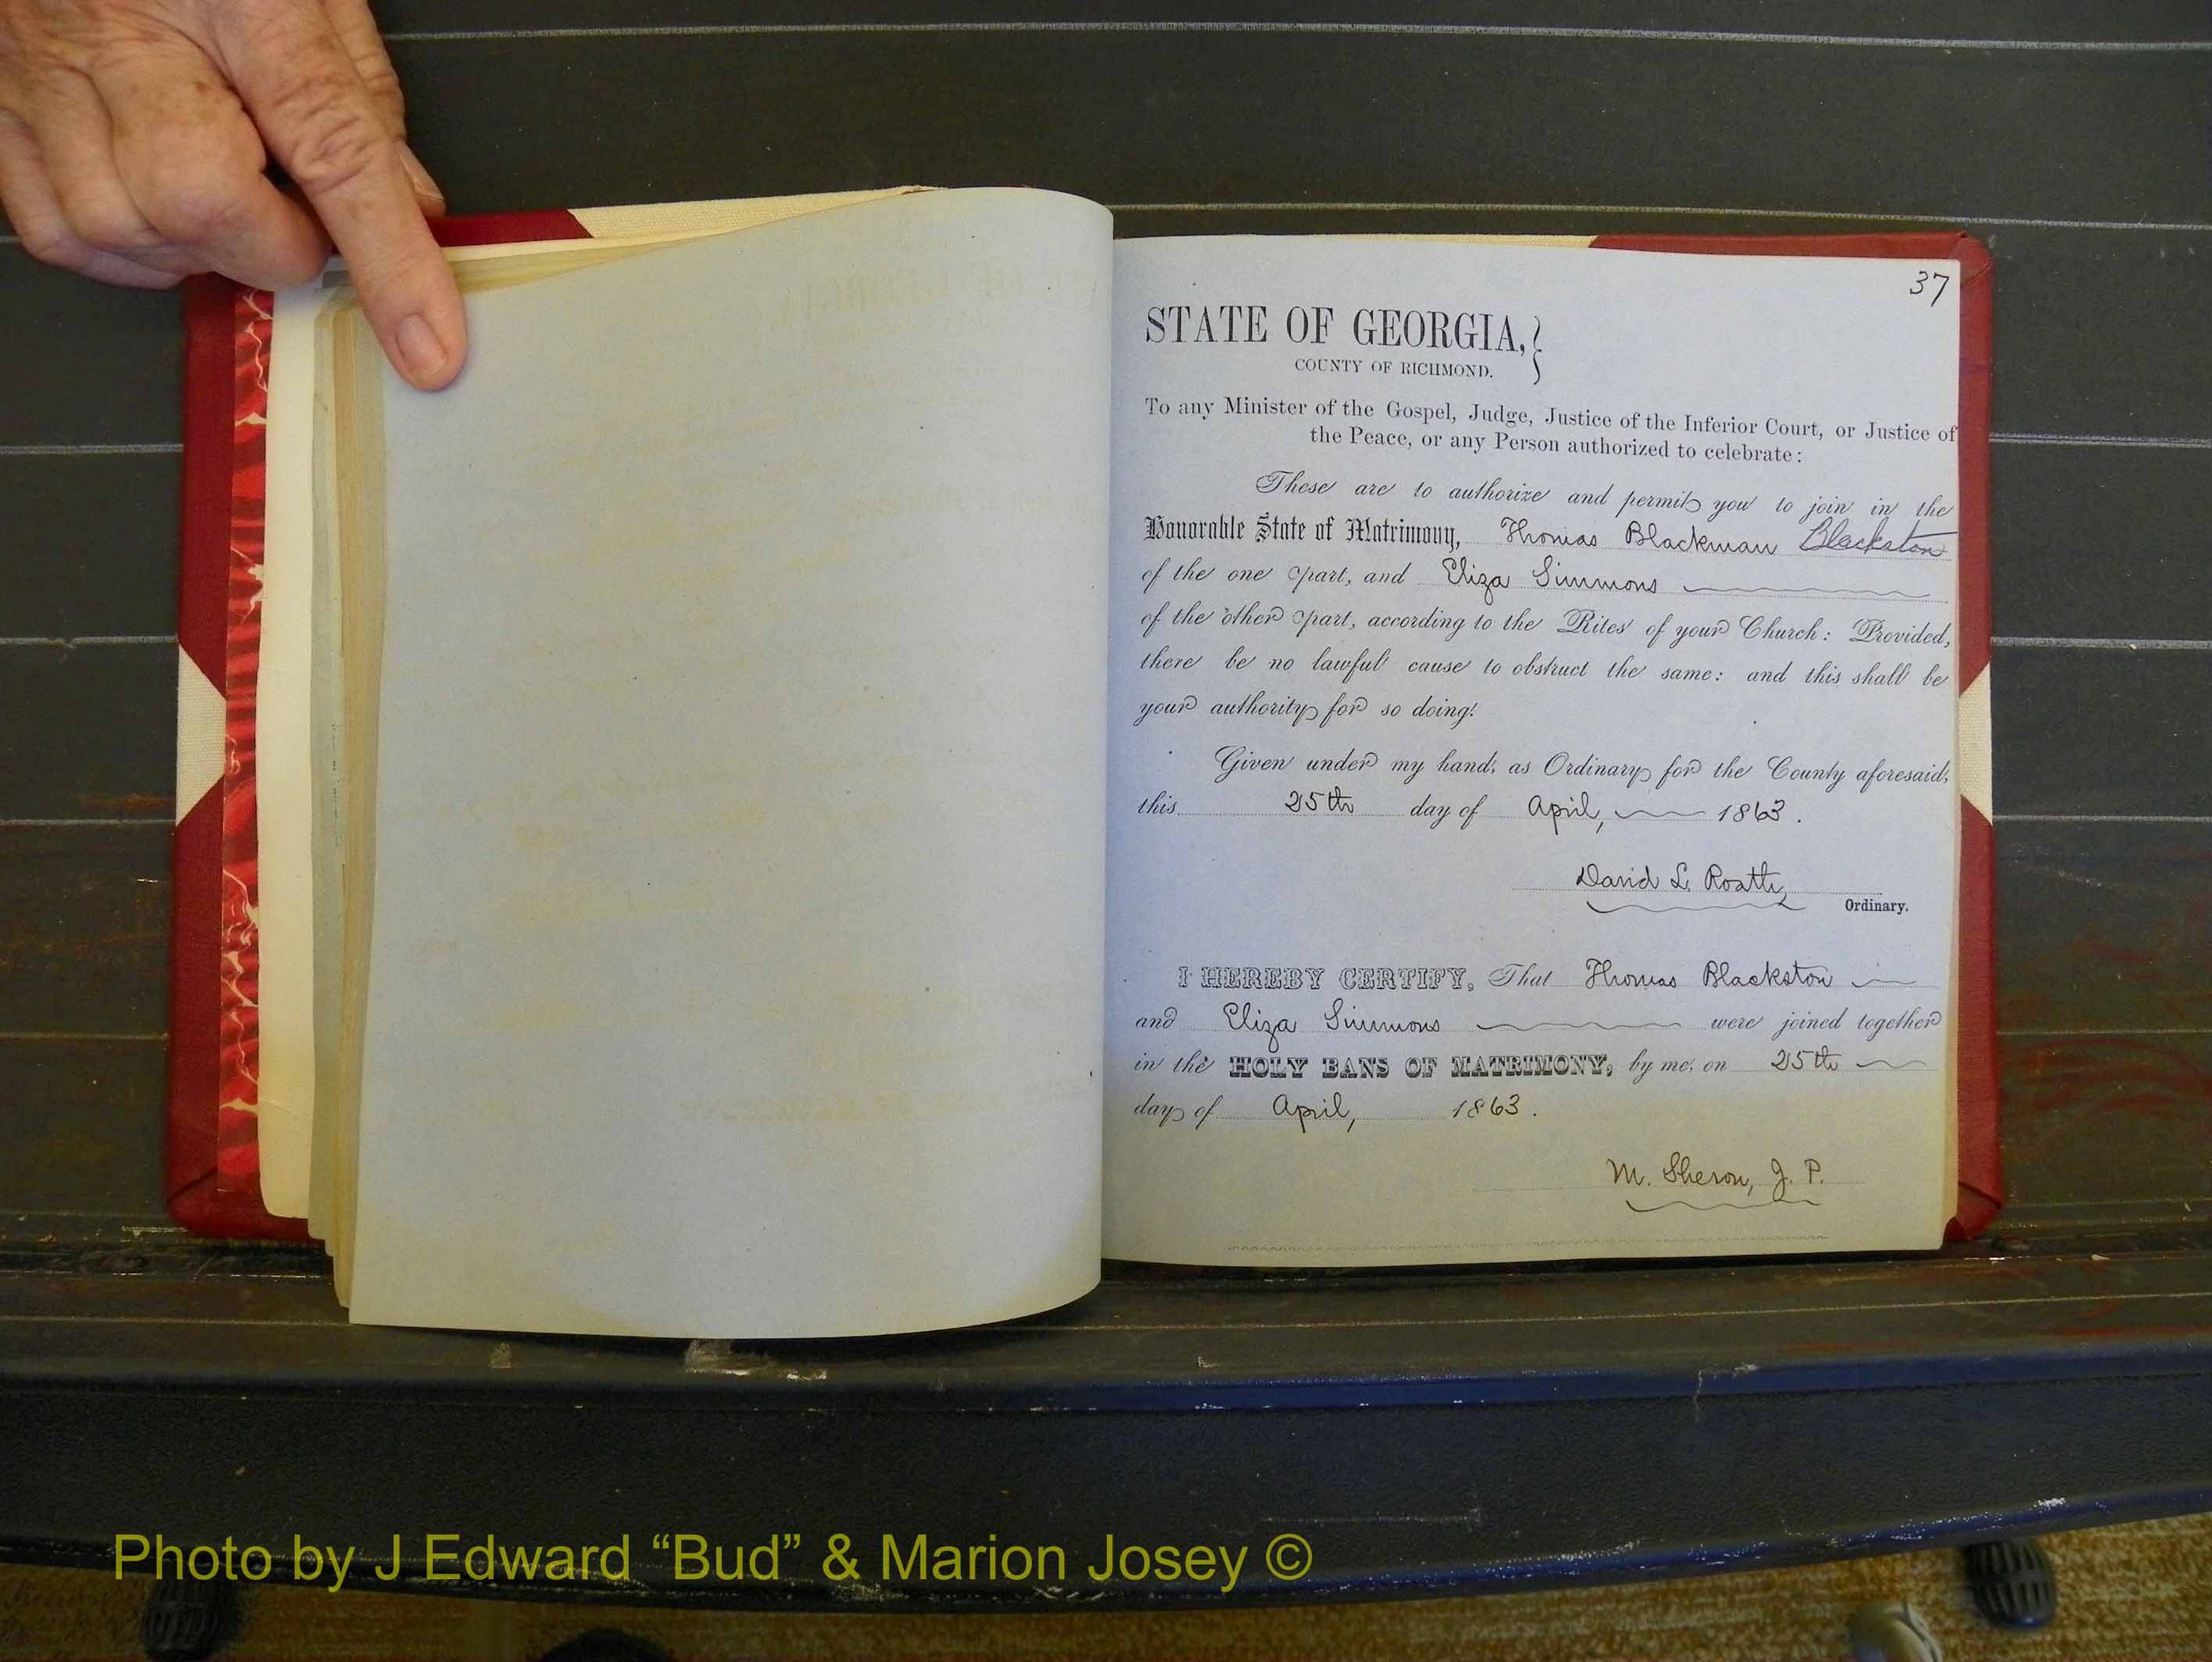 37
STATE OF GEORGIA,
COUNTY OF RICHMOND.
To any Minister of the Gospel, Judge, Justice of the Inferior Court, or Justice of
the Peace, or any Person authorized to celebrate:
These are to authorize and permit you to join in the
Honorable State of Matrimony, Thomas Blackman Blackston
of the one part, and Eliza Simmons
of the other part, according to the Rites of your Church: Provided,
there be no lawful cause to obstruct the same: and this shall be
your authority for so doing.
Given under my hand, as Ordinary for the County aforesaid,
this 25th day of April, 1863.
David L. Roath,
Ordinary.
I HEREBY CERTIFY, That Thomas Blackston
and Eliza Simmons were joined together
in the HOLY BANS OF MATRIMONY, by me, on 25th
day of April, 1863.
M. Sheron, J. P.
Photo by J Edward “Bud” & Marion Josey ©